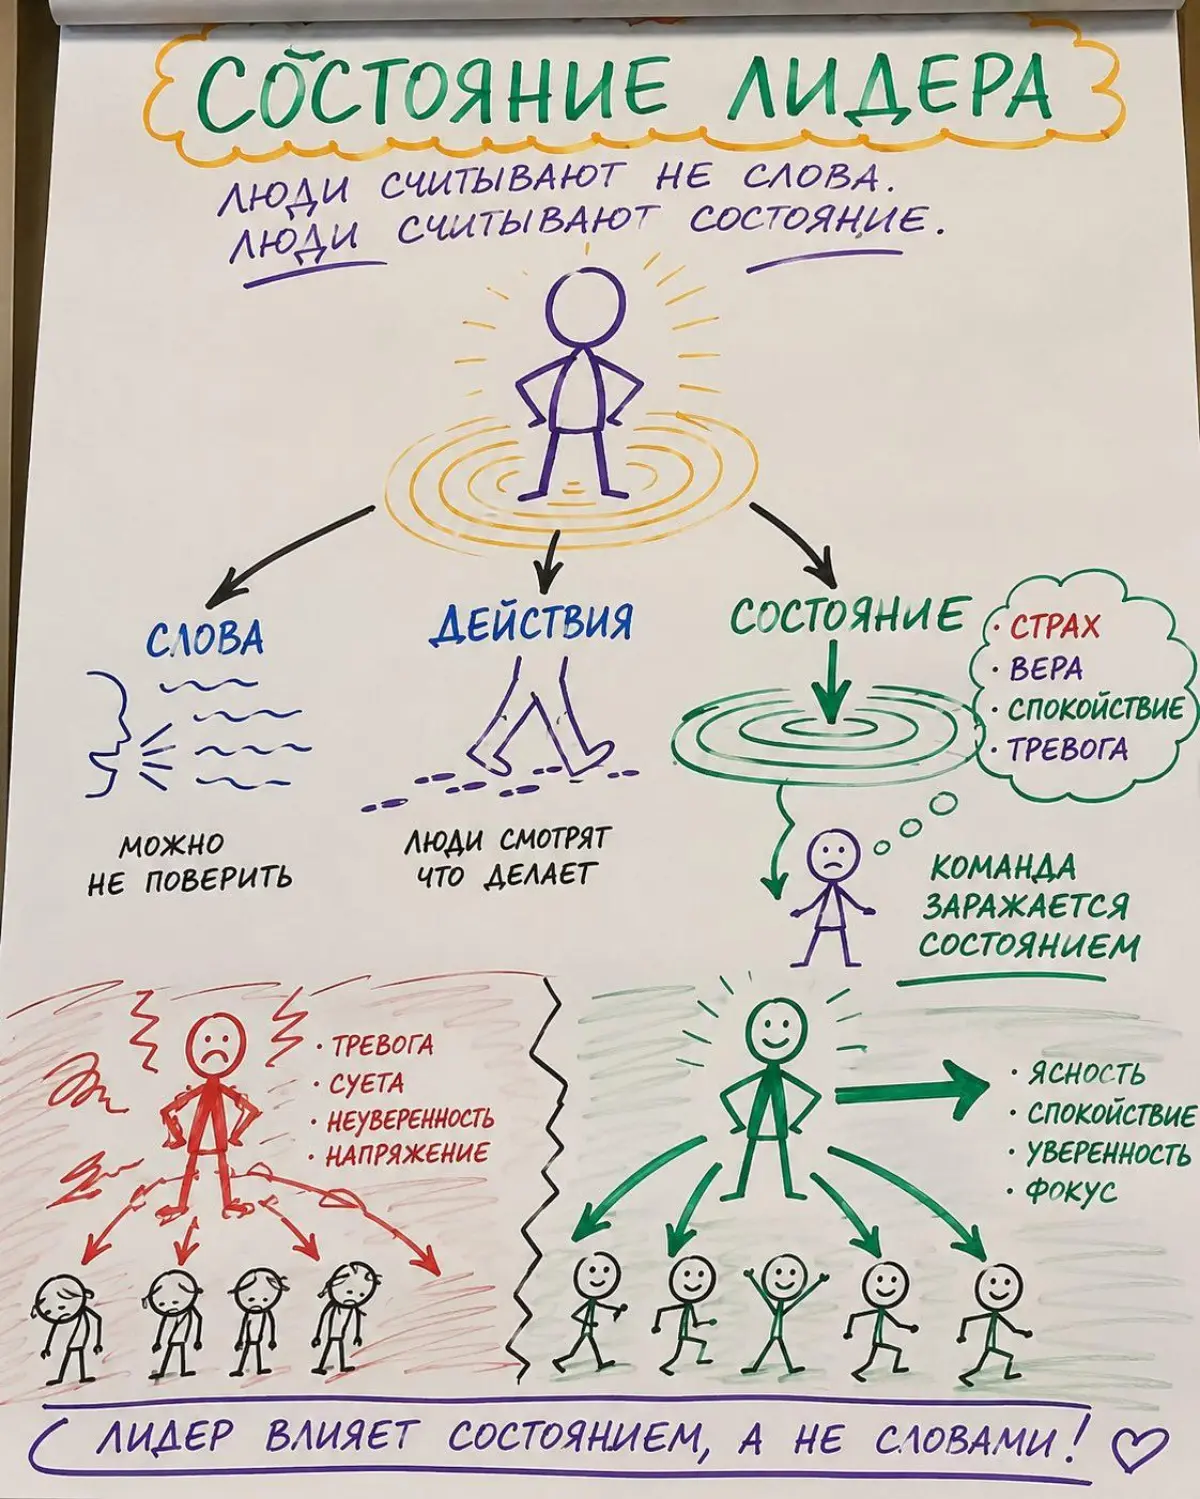 СОСТОЯНИЕ ЛИДЕРА
ЛЮДИ СЧИТЫВАЮТ НЕ СЛОВА.
ЛЮДИ СЧИТЫВАЮТ СОСТОЯНИЕ.
СЛОВА
МОЖНО
НЕ ПОВЕРИТЬ
ДЕЙСТВИЯ
ЛЮДИ СМОТРЯТ
ЧТО ДЕЛАЕТ
СОСТОЯНИЕ
· СТРАХ
· ВЕРА
· СПОКОЙСТВИЕ
· ТРЕВОГА
КОМАНДА
ЗАРАЖАЕТСЯ
СОСТОЯНИЕМ
· ТРЕВОГА
· СУЕТА
· НЕУВЕРЕННОСТЬ
· НАПРЯЖЕНИЕ
· ЯСНОСТЬ
· СПОКОЙСТВИЕ
· УВЕРЕННОСТЬ
· ФОКУС
ЛИДЕР ВЛИЯЕТ СОСТОЯНИЕМ, А НЕ СЛОВАМИ!